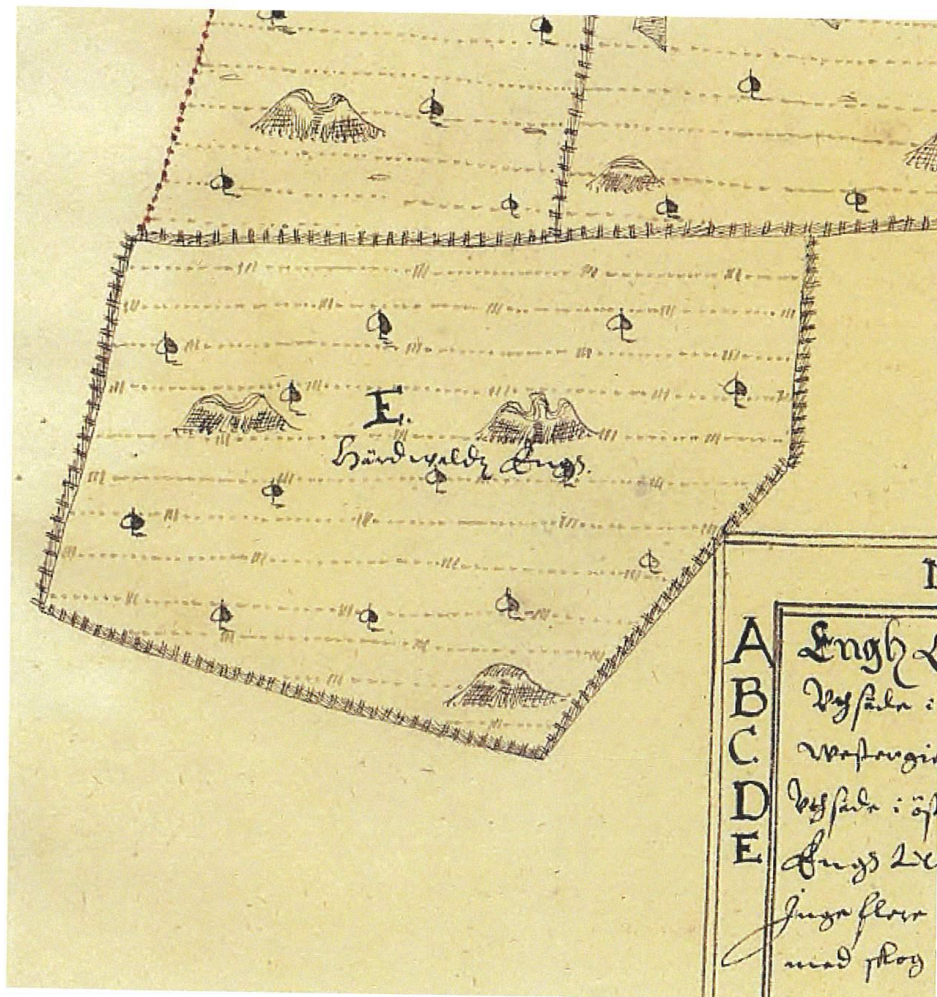 E.
Härdwaldz Engs.
A Engh
B Vthsäde i
C. Westergie
D Vthsäde i öst
E Engs
Inge flere
med skog